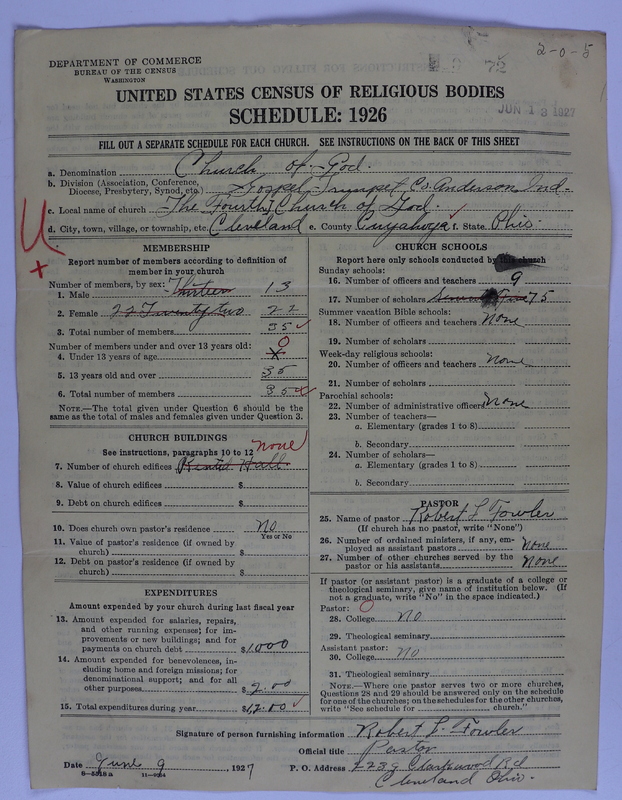 2-0-5
DEPARTMENT OF COMMERCE
BUREAU OF THE CENSUS
WASHINGTON
UNITED STATES CENSUS OF RELIGIOUS BODIES
JUN 13 1927
SCHEDULE: 1926
FILL OUT A SEPARATE SCHEDULE FOR EACH CHURCH. SEE INSTRUCTIONS ON THE BACK OF THIS SHEET
a. Denomination Church of God.
b. Division (Association, Conference, Diocese, Presbytery, Synod, etc.) Gospel Trumpet Co. Anderson Ind.
c. Local name of church The Fourth Church of God.
d. City, town, village, or township, etc. Cleveland e. County Cuyahoga f. State Ohio.
MEMBERSHIP
Report number of members according to definition of
member in your church
Number of members, by sex:
1. Male Thirteen 13
2. Female 22 Twenty two 22
3. Total number of members 35
Number of members under and over 13 years old:
4. Under 13 years of age 0
5. 13 years old and over 35
6. Total number of members 35
NOTE.—The total given under Question 6 should be the
same as the total of males and females given under Question 3.
CHURCH BUILDINGS
See instructions, paragraphs 10 to 12
none
7. Number of church edifices Rented Hall
8. Value of church edifices $
9. Debt on church edifices $
10. Does church own pastor's residence No
Yes or No
11. Value of pastor's residence (if owned by
church) $
12. Debt on pastor's residence (if owned by
church) $
EXPENDITURES
Amount expended by your church during last fiscal year
13. Amount expended for salaries, repairs,
and other running expenses; for im-
provements or new buildings; and for
payments on church debt $10.00
14. Amount expended for benevolences, in-
cluding home and foreign missions; for
denominational support; and for all
other purposes $2.00
15. Total expenditures during year $12.00
CHURCH SCHOOLS
Report here only schools conducted by this church
Sunday schools:
16. Number of officers and teachers 9
17. Number of scholars 75
Summer vacation Bible schools:
18. Number of officers and teachers None
19. Number of scholars
Week-day religious schools:
20. Number of officers and teachers None
21. Number of scholars
Parochial schools:
22. Number of administrative officers None
23. Number of teachers—
a. Elementary (grades 1 to 8)
b. Secondary
24. Number of scholars—
a. Elementary (grades 1 to 8)
b. Secondary
PASTOR
25. Name of pastor Robert L Fowler
(If church has no pastor, write "None")
26. Number of ordained ministers, if any, em-
ployed as assistant pastors None
27. Number of other churches served by the
pastor or his assistants None
If pastor (or assistant pastor) is a graduate of a college or
theological seminary, give name of institution below. (If
not a graduate, write "No" in the space indicated.)
Pastor:
28. College No
29. Theological seminary
Assistant pastor:
30. College No
31. Theological seminary
NOTE.—Where one pastor serves two or more churches,
Questions 28 and 29 should be answered only on the schedule
for one of the churches; on the schedules for the other churches,
write "See schedule for church."
Signature of person furnishing information Robert L. Fowler
Official title Pastor
Date June 9, 1927 P. O. Address 2239 Clarkwood Rd
8—5518 a 11—9204 Cleveland Ohio.